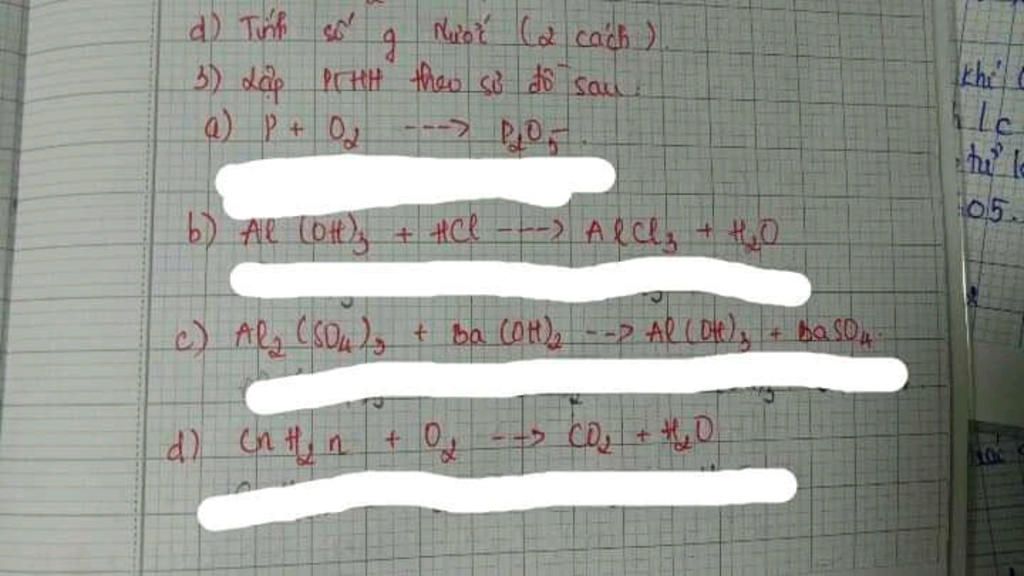 d) Tính số g nước (2 cách)
3) Lập PTHH theo sơ đồ sau:
a) P + O2 ---> P2O5
b) Al(OH)3 + HCl ---> AlCl3 + H2O
c) Al2(SO4)3 + Ba(OH)2 --> Al(OH)3 + BaSO4.
d) CnH2n + O2 --> CO2 + H2O
khí
1c
tử
05.